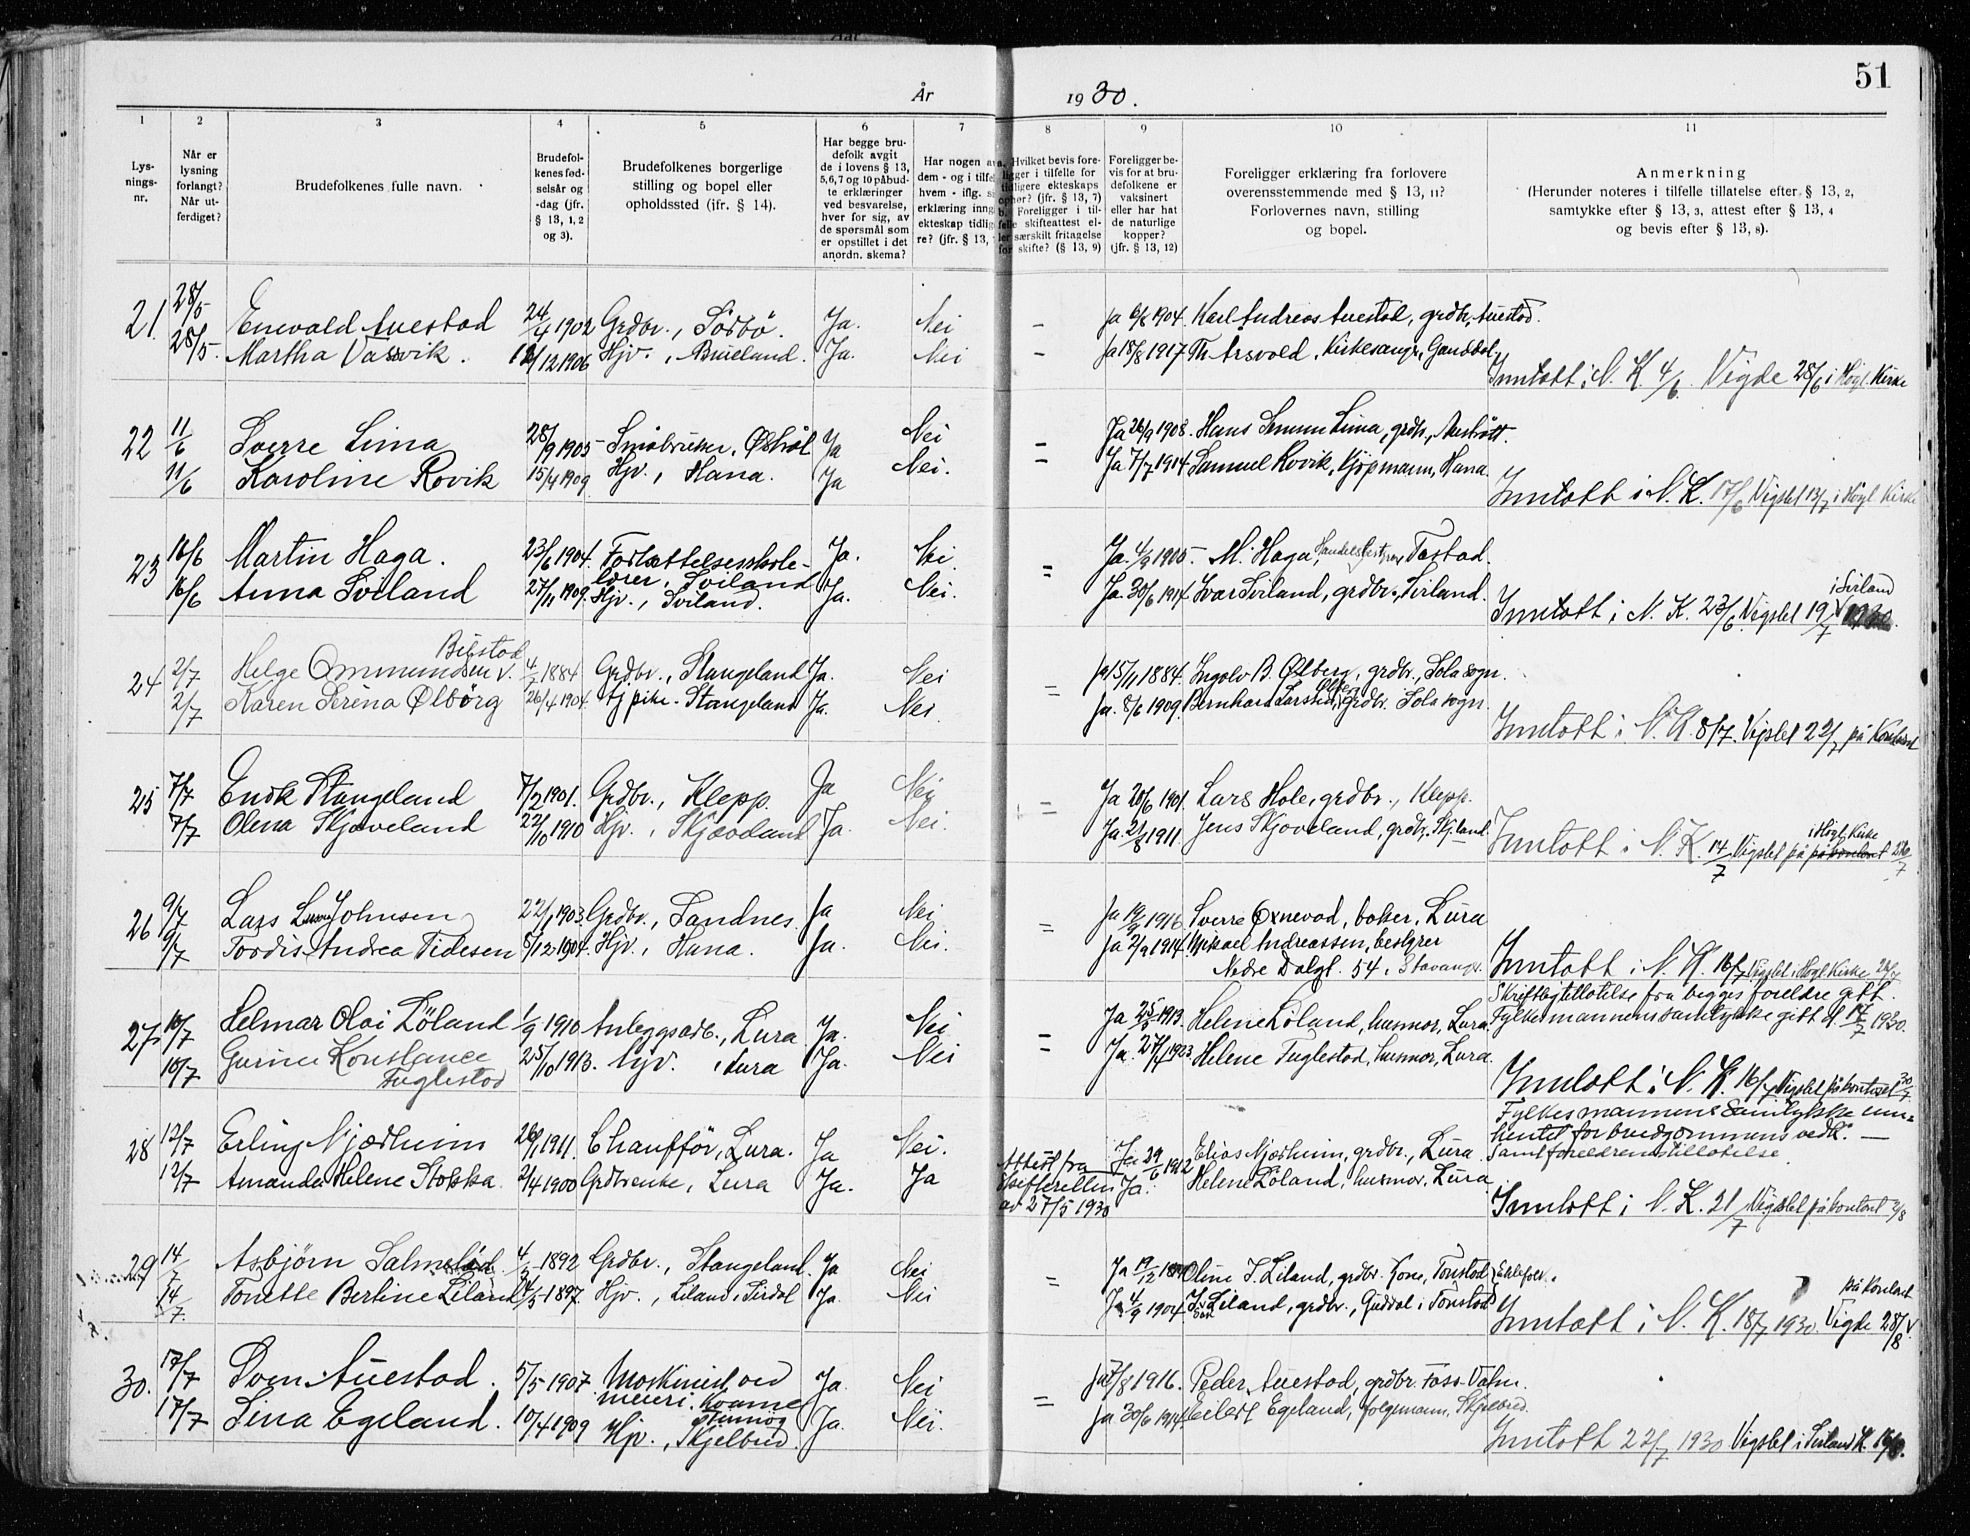 51
År 1930.
1 2 3 4 5 6 7 8 9 10 11
Lys-
nings-
nr.
Når er
lysning
forlangt?
Når ut-
ferdiget?
Brudefolkenes fulle navn.
Brudefol-
kenes fød-
selsår og
-dag (jfr.
§ 13, 1, 2
og 3).
Brudefolkenes borgerlige
stilling og bopel eller
opholdssted (jfr. § 14).
Har begge bru-
defolk avgit
de i lovens § 13,
5, 6, 7 og 10 påbud-
te erklæringer
ved besvarelse,
hver for sig, av
de spørsmål som
er opstillet i det
anordn. skema?
Har nogen av
dem - og i tilfel
hvem - iflg. s
erklæring inng
ekteskap tidlig
re? (jfr. § 13,
a. Hvilket bevis fore-
ligger i tilfelle for
tidligere ekteskaps
ophør? (jfr. § 13, 7)
b. Foreligger i til-
felle skifteattest el-
ler særskilt fritagelse
for skifte? (§ 13, 9)
Foreligger be-
vis for at bru-
defolkene er
vaksinert
eller har hat
de naturlige
kopper?
(jfr. § 13, 12)
Foreligger erklæring fra forlovere
overensstemmende med § 13, 11?
Forlovernes navn, stilling
og bopel.
Anmerkning
(Herunder noteres i tilfelle tillatelse efter § 13, 2,
samtykke efter § 13, 3, attest efter § 13, 4
og bevis efter § 13, 8).
21. 28/5 Enevald Auestad 24/4 1902 Grdbr., Sörbö. Ja. Nei – Ja 6/8 1904. Karl Andreas Auestad, grdbr., Auestad.
28/5. Martha Vassvik. 12/12 1906 Hjv., Brueland. Ja. Nei – Ja 18/8 1917 Th. Arsvold, Kirkesanger, Gandbol.
Inntatt i N. K. 4/6. Vigde 28/6 i Högl. Kirke
22 11/6 Sverre Lima 28/9 1905 Småbruker, Østhöl Ja Nei – Ja 26/9 1908. Hans Lima, grdbr.,
11/6 Karoline Rovik 15/4 1909 Hjv., Hana. Ja Nei. – Ja 7/7 1914 Samuel Rovik, Kjøpmann, Hana
Inntatt i N. K. 17/6 Vigslet 13/7 i Högl Kirke
23 16/6 Martin Haga. 23/6 1904. Fortsettelsesskole- Ja. Nei = Ja 4/9 1905 M. Haga, Tastad.
lærer, Sviland
16/6 Anna Sviland 27/11 1909. Hjv., Sviland. Ja. Nei. Ja 30/6 1917 Ivar Sviland, grdbr., Sviland.
i Sviland
Inntatt i N. K. 23/6 Vigslet 19/7
Bilstad
24 2/7 Helge Ommundsen v. 4/7 1884 Grdbr., Stangeland Ja. Nei = Ja 15/11 1884. Ingolv B. Ølberg, grdbr., Sola sogn.
2/7 Karen Serina Ølbörg 26/4 1904. Tj pike. Stangeland Ja. Nei Ja. 8/6 1909. Bernhard Larssen Ølberg, grdbr. Sola sogn.
Inntatt i N. K. 8/7. Vigslet 22/7 på Kontoret
25 7/7 Endre Stangeland 7/2 1901. Grdbr., Klepp. Ja Nei = Ja 20/6 1901. Lars Hole, grdbr., Klepp.
7/7 Olena Skjæveland 22/10 1910 Hjv., Skjæveland Ja. Nei. Ja. 21/8 1911. Jens Skjæveland, grdbr. Skj.land.
i Högl. Kirke
Inntatt i N. K. 14/7 Vigslet på på kontoret 26/7
26 9/7 Lars Johnsen 22/1 1903 Grdbr., Sandnes. Ja Nei = Ja 19/9 1916 Sverre Oxnevad, baker, Lura
9/7 Tordis Andrea Tidesen 5/12 1904. Hjv., Hana. Ja. Nei. Ja 2/9 1914. Mikael Andreassen, bestyrer
Nedre Dalgt. 54, Stavanger.
Inntatt i N. K. 16/7 Vigslet i Högl Kirke 26/7
27 10/7 Helmar Olai Löland 1/9 1910 Anleggsarb., Lura Ja. Nei = Ja 25/5 1913. Helene Löland, husmor, Lura
10/7 Gurine Konstance 25/10 1913. Hjv., Lura Ja. Nei = Ja. 27/1 1923. Helene Fuglestad, husmor, Lura.
Fuglestad
Skriftlig tillatelse fra begges foreldre gitt.
Fylkesmannens samtykke gitt d. 14/7 1930.
Inntatt i N. K. 16/7 Vigslet på kontoret 30/7
28 12/7 Erling Njærheim 26/1 1911. Chauffør, Lura. Ja Nei. Ja 29/6 1912 Elias Njærheim, grdbr., Lura
12/7 Amanda Helene Stokka 2/4 1900 Grdbrenke, Lura Ja. Ja Ja. Helene Löland, husmor, Lura
Attest fra
Skifteretten
av 27/5 1930
Fylkesmannens samtykke inn-
hentet for brudgommens vedk. –
Samt foreldrenes tillatelse
Inntatt i N. K. 21/7 Vigslet på kontoret 2/8
29 14/7 Asbjørn Salmeland 4/3 1892 Grdbr., Stangeland. Ja Nei = Ja 19/12 Oline T. Liland, grdbr. kone, Tonstad
14/7. Tonette Bertine Liland 4/5 1897 Hjv., Liland i Sirdal Ja. Nei Ja 4/9 1904 Liland, grdbr., Guddal i Tonstad
på Kontoret
Inntatt i N. K. 18/7 1930. Vigde 28/8
30. 17/7 Sven Auestad. 5/5 1907. Maskinist ved Ja. Nei = Ja 7/8 1916. Peder Auestad, grdbr. Foss-Vatn.
meieri.
17/7 Sina Egeland. 10/4 1909 Hjv., Skjelbred. Ja. Nei. Ja 30/6 1914. Eilert Egeland, folgemann, Skjelbred.
Inntatt 22/7 1930 Vigslet i Sviland K.